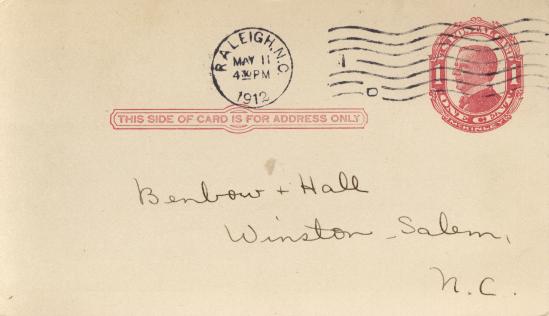 RALEIGH, N.C.
MAY 11
4 30 PM
1912
1
D
U.S. POSTAL CARD
1 1
ONE CENT
McKINLEY
THIS SIDE OF CARD IS FOR ADDRESS ONLY
Benbow + Hall
Winston-Salem,
N.C.